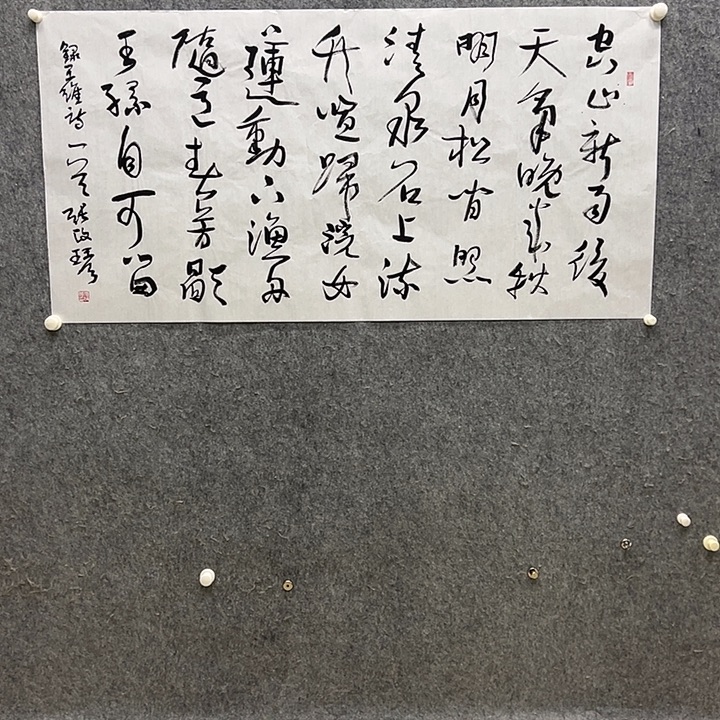 空山新雨後
天氣晚來秋
明月松間照
清泉石上流
竹喧歸浣女
蓮動下漁舟
隨意春芳歇
王孫自可留
錄王維詩一首 張改琴